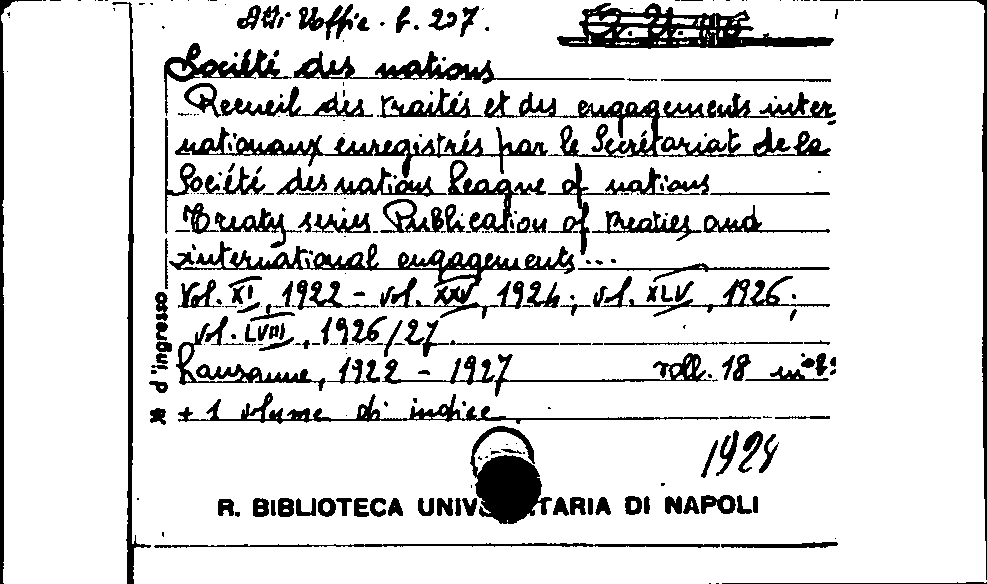 Atti Uffic. b. 227.
Société des nations
Recueil des traités et des engagements inter-
nationaux enregistrés par le Secrétariat de la
Société des nations League of nations
Treaty series Publication of treaties and
international engagements ...
Vol. XI, 1922 - vol. XXV, 1924; vol. XLV, 1926;
vol. LVIII, 1926/27.
Lausanne, 1922 - 1927 voll. 18 in 8º
+ 1 volume di indice
1928
d'ingresso
R. BIBLIOTECA UNIV TARIA DI NAPOLI